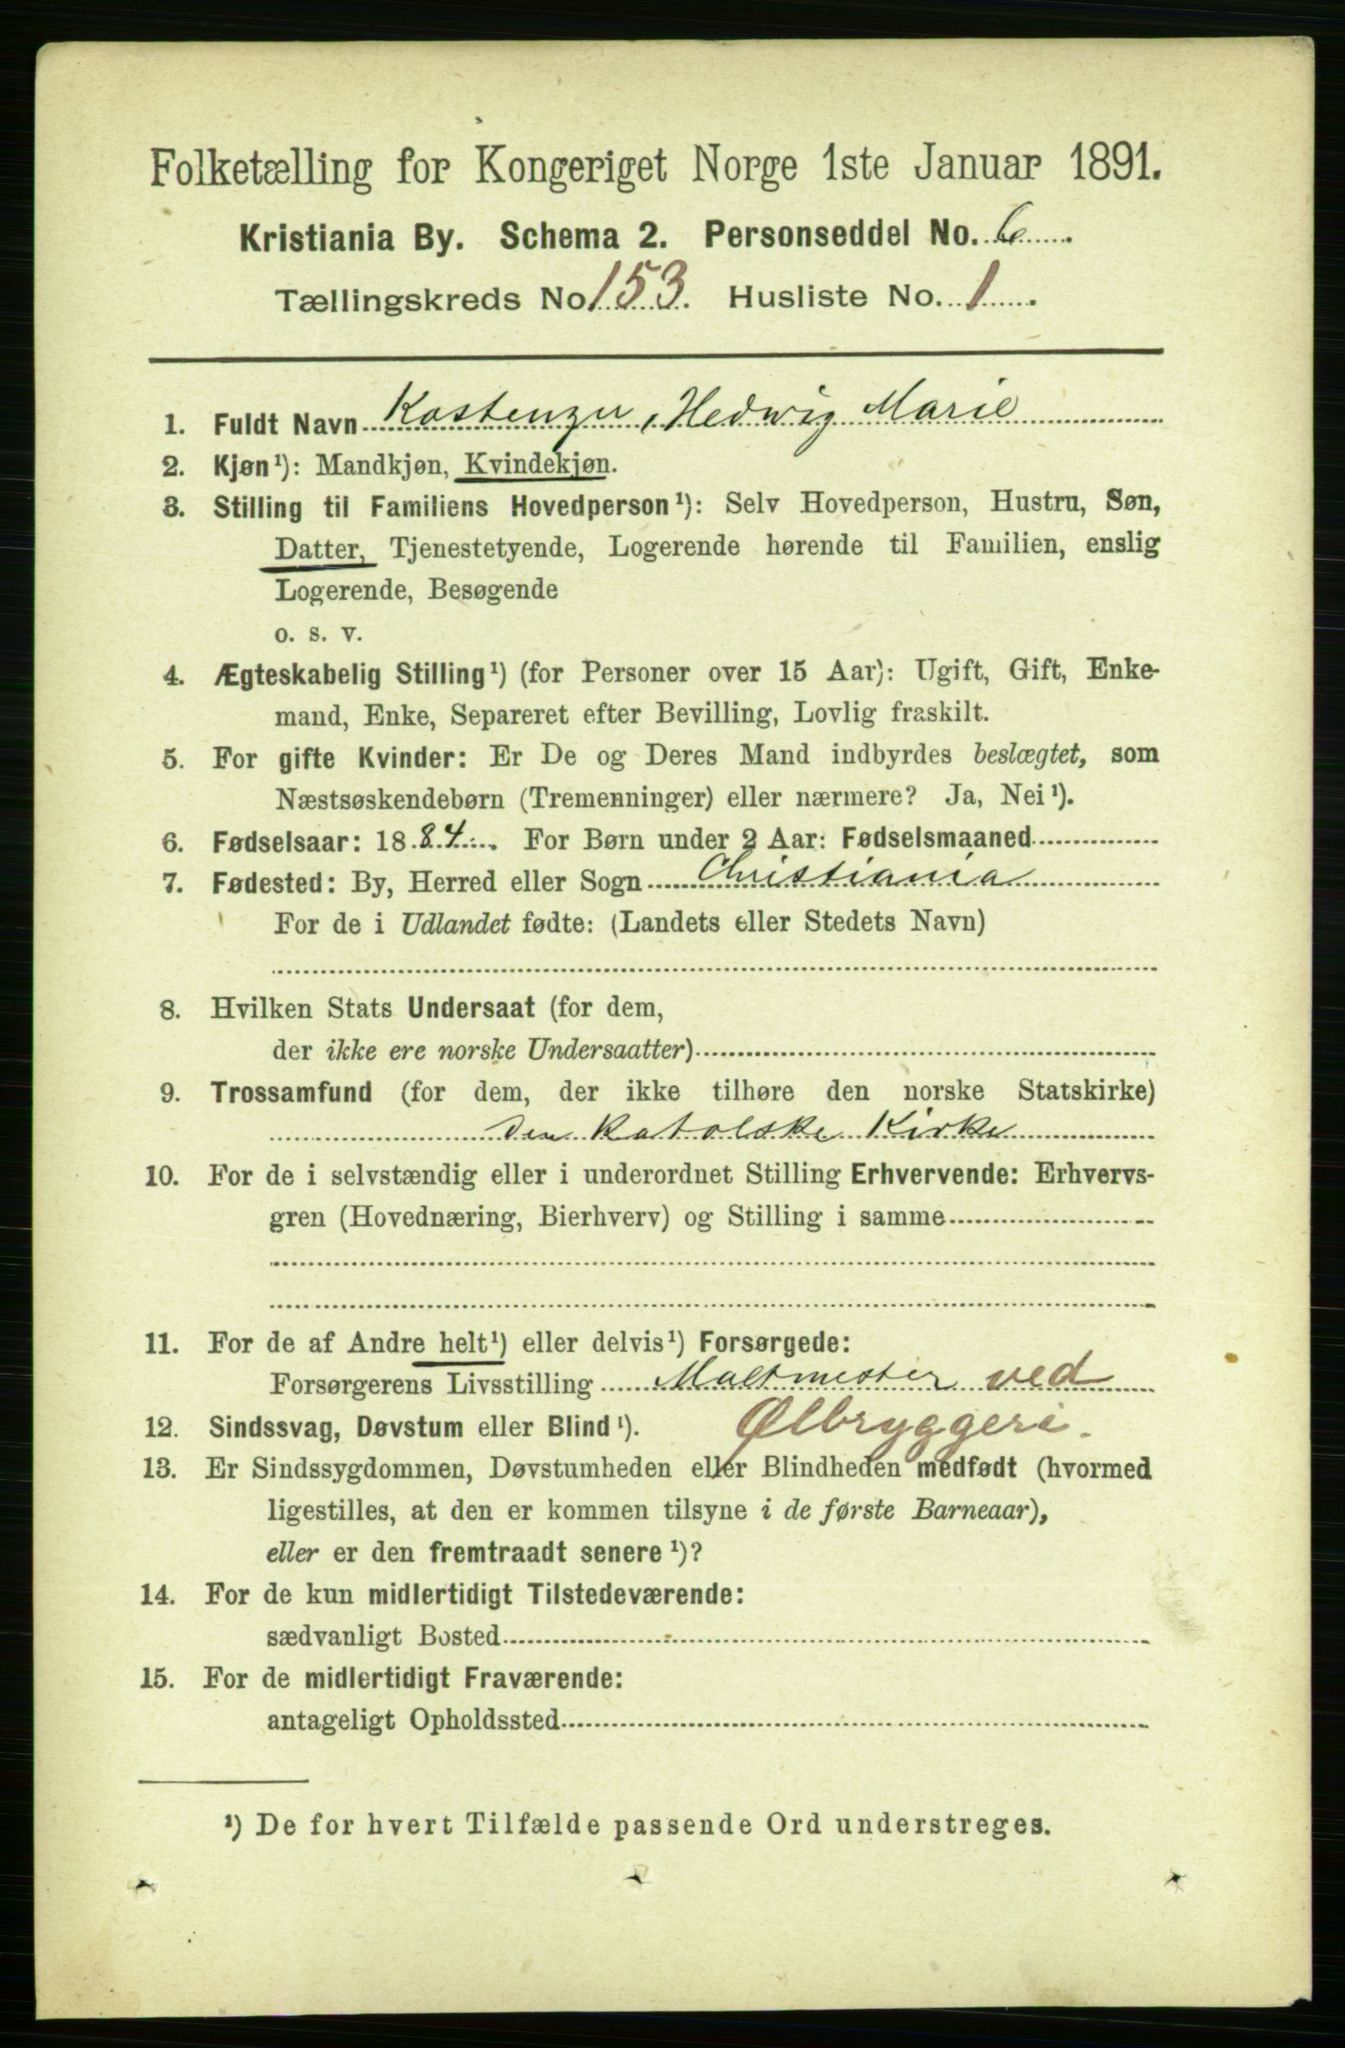 Folketælling for Kongeriget Norge 1ste Januar 1891.
Kristiania By. Schema 2. Personseddel No. 6
Tællingskreds No. 153. Husliste No. 1
1. Fuldt Navn Kostenzer, Hedwig Marie
2. Kjøn¹): Mandkjøn, Kvindekjøn.
3. Stilling til Familiens Hovedperson¹): Selv Hovedperson, Hustru, Søn,
Datter, Tjenestetyende, Logerende hørende til Familien, enslig
Logerende, Besøgende
o. s. v.
4. Ægteskabelig Stilling¹) (for Personer over 15 Aar): Ugift, Gift, Enke-
mand, Enke, Separeret efter Bevilling, Lovlig fraskilt.
5. For gifte Kvinder: Er De og Deres Mand indbyrdes beslægtet, som
Næstsøskendebørn (Tremenninger) eller nærmere? Ja, Nei¹).
6. Fødselsaar: 1884. For Børn under 2 Aar: Fødselsmaaned
7. Fødested: By, Herred eller Sogn Christiania
For de i Udlandet fødte: (Landets eller Stedets Navn)
8. Hvilken Stats Undersaat (for dem,
der ikke ere norske Undersaatter)
9. Trossamfund (for dem, der ikke tilhøre den norske Statskirke)
den katolske Kirke
10. For de i selvstændig eller i underordnet Stilling Erhvervende: Erhvervs-
gren (Hovednæring, Bierhverv) og Stilling i samme
11. For de af Andre helt¹) eller delvis¹) Forsørgede:
Forsørgerens Livsstilling Maltmester ved
12. Sindssvag, Døvstum eller Blind¹). Ølbryggeri.
13. Er Sindssygdommen, Døvstumheden eller Blindheden medfødt (hvormed
ligestilles, at den er kommen tilsyne i de første Barneaar),
eller er den fremtraadt senere¹)?
14. For de kun midlertidigt Tilstedeværende:
sædvanligt Bosted
15. For de midlertidigt Fraværende:
antageligt Opholdssted
¹) De for hvert Tilfælde passende Ord understreges.